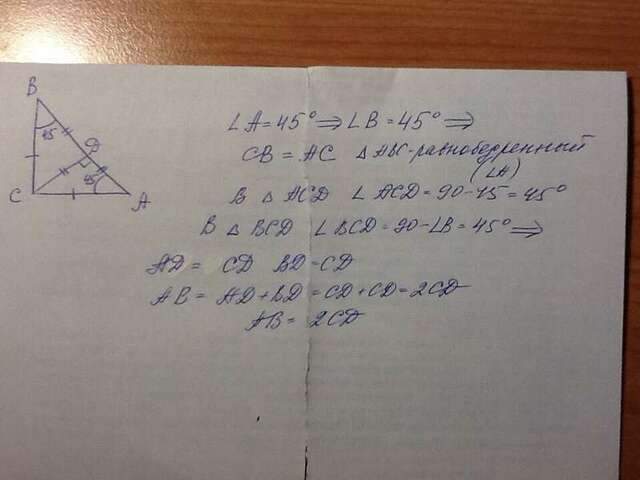 B
45
D
45
C
A
∠A=45° ⇒ ∠B=45° ⇒
CB = AC △ ABC-равнобедренный
(∠A)
В △ ACD ∠ ACD = 90-45 = 45°
В △ BCD ∠ BCD = 90-∠B = 45° ⇒
AD = CD BD=CD
AB = AD+BD=CD+CD=2CD
AB = 2CD